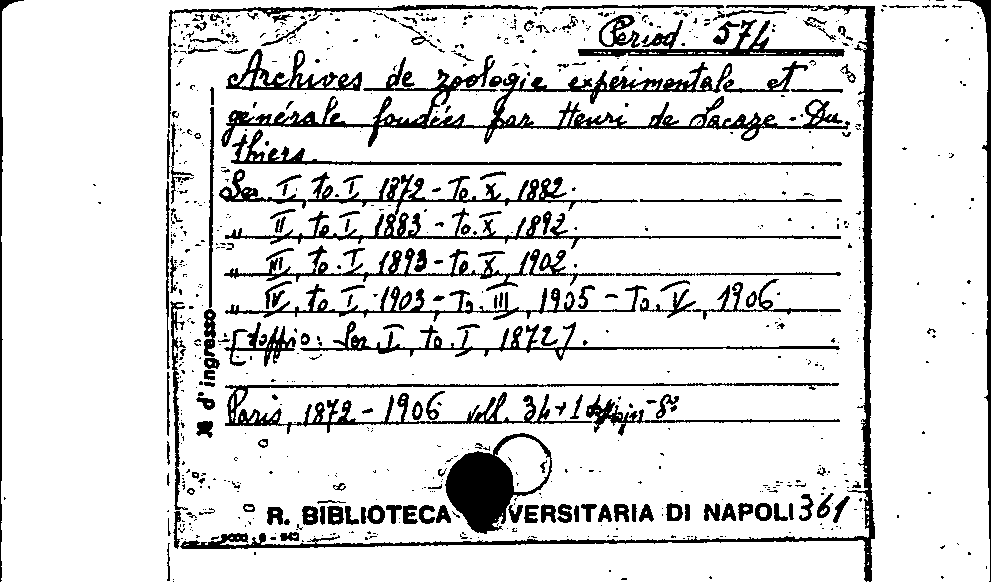 Period. 574
Archives de zoologie expérimentale et
générale fondées par Henri de Lacaze-Du
thiers.
Ser. I, to. I, 1872 - To. X, 1882;
" II, to. I, 1883 - to. X, 1892;
" III, to. I, 1893 - to. X, 1902;
" IV, to. I, 1903, - To. III, 1905 - To. V, 1906.
[doppio: Ser. I, to. I, 1872].
Paris, 1872 - 1906 voll. 34 + 1 doppio in - 8º
№ d'ingresso
R. BIBLIOTECA VERSITARIA DI NAPOLI 361